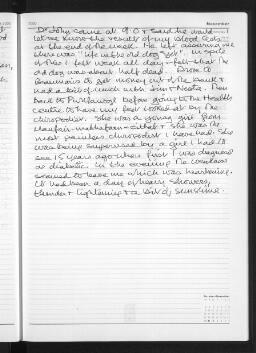 Dr John came at 9.0 & said he would
let me know the results of my blood tests
at the end of the week. He left assuring me
there was "life in the old dog yet". In spite
of this I felt weak all day – felt that the
old dog was about half dead. Drove
to get money out of the bank &
had a bit of lunch with Jim &
back to before going to the Health
Centre to have my feet looked at by the
chiropodist. She was a young girl from
& she was the
most painless chiropodist I have had. She
was being supervised by a girl I had to
see 15 years ago when first I was diagnosed
as diabetic. In the evening the
seemed to leave me which was heartening.
It had been a day of heavy showers,
thunder & lightening & a bit of sunshine.